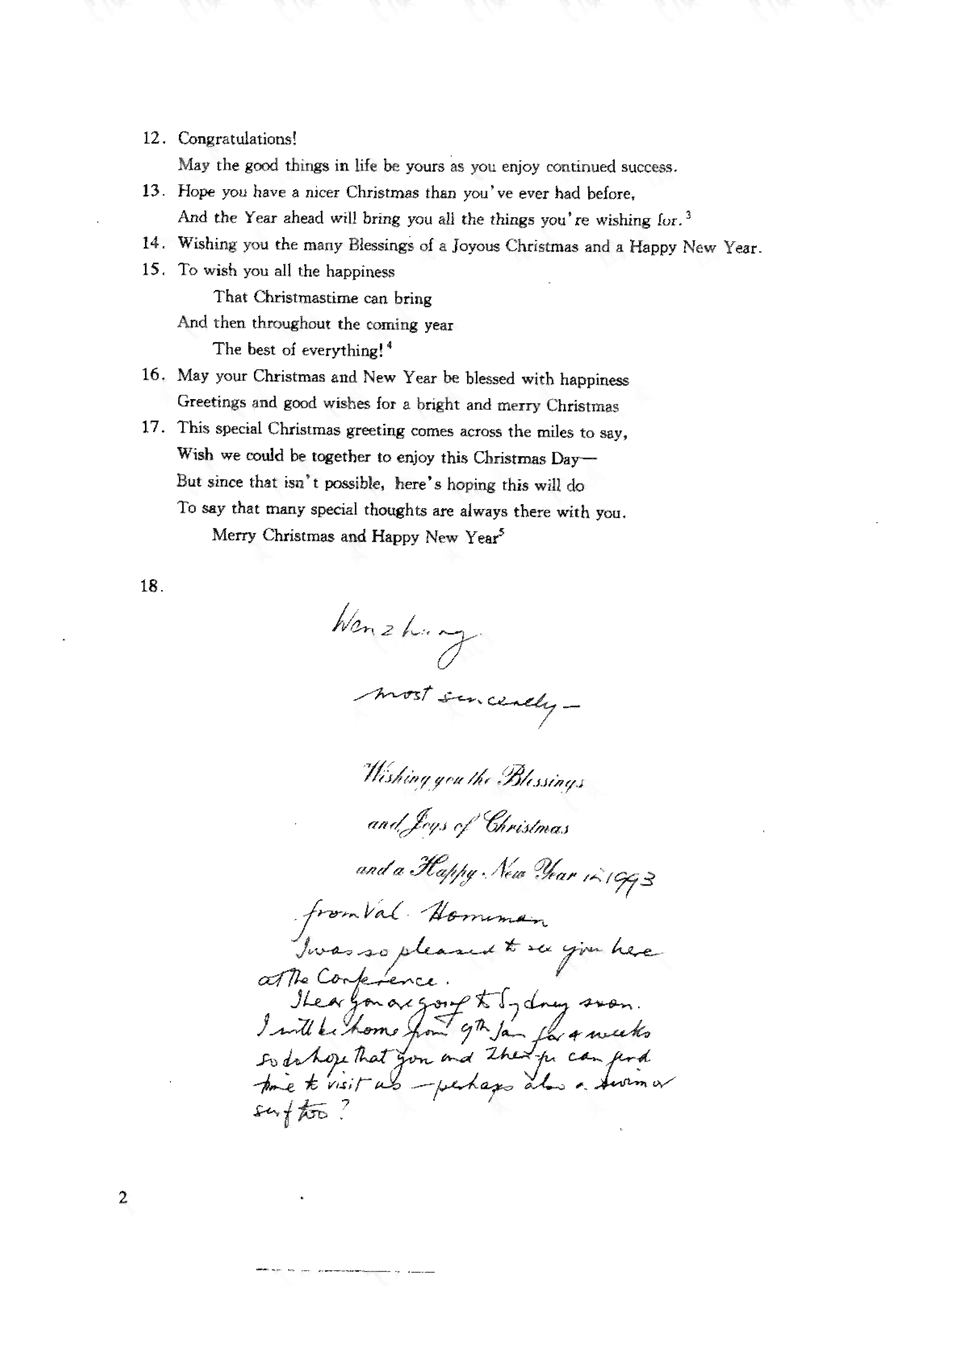 12. Congratulations!
May the good things in life be yours as you enjoy continued success.
13. Hope you have a nicer Christmas than you've ever had before,
And the Year ahead will bring you all the things you're wishing for.³
14. Wishing you the many Blessings of a Joyous Christmas and a Happy New Year.
15. To wish you all the happiness
That Christmastime can bring
And then throughout the coming year
The best of everything!⁴
16. May your Christmas and New Year be blessed with happiness
Greetings and good wishes for a bright and merry Christmas
17. This special Christmas greeting comes across the miles to say,
Wish we could be together to enjoy this Christmas Day—
But since that isn't possible, here's hoping this will do
To say that many special thoughts are always there with you.
Merry Christmas and Happy New Year⁵
18.
most sincerely –
Wishing you the Blessings
and Joys of Christmas
and a Happy New Year in 1993
from Val
I was so pleased to see you here
at the Conference.
I hear you are going to Sydney soon.
I will be home from 9th Jan for 4 weeks
so do hope that you and can find
time to visit us – perhaps also a swim or
surf too?
2